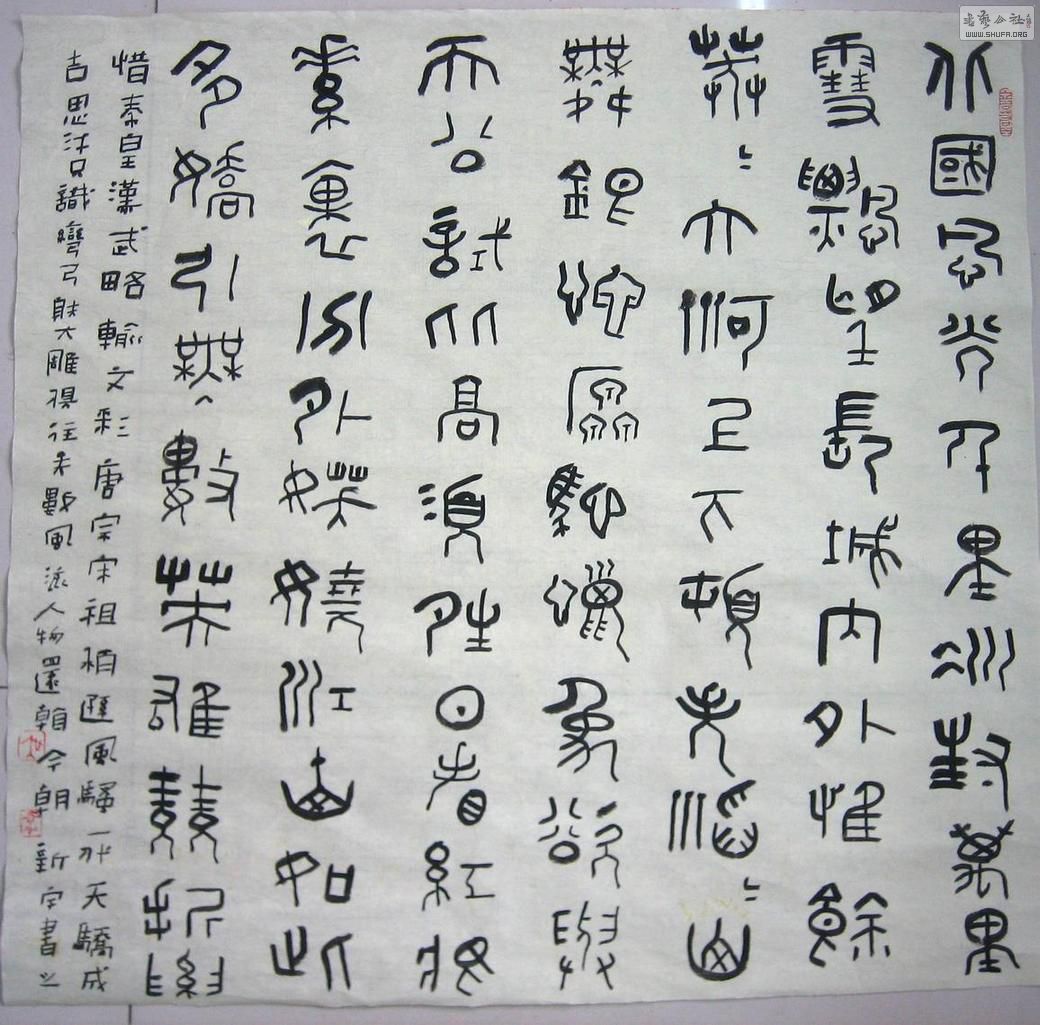 北國風光千里冰封萬里
雪飄望長城內外惟餘
莽〻大河上下頓失滔〻山
舞銀蛇原馳蠟象欲與
天公試比高須晴日看紅妝
素裹分外妖嬈江山如此
多嬌引無數英雄競折腰
惜秦皇漢武略輸文彩唐宗宋祖稍遜風騷一代天驕成
吉思汗只識彎弓射大雕俱往矣數風流人物還看今朝 新宇書之
書藝公社
WWW.SHUFA.ORG